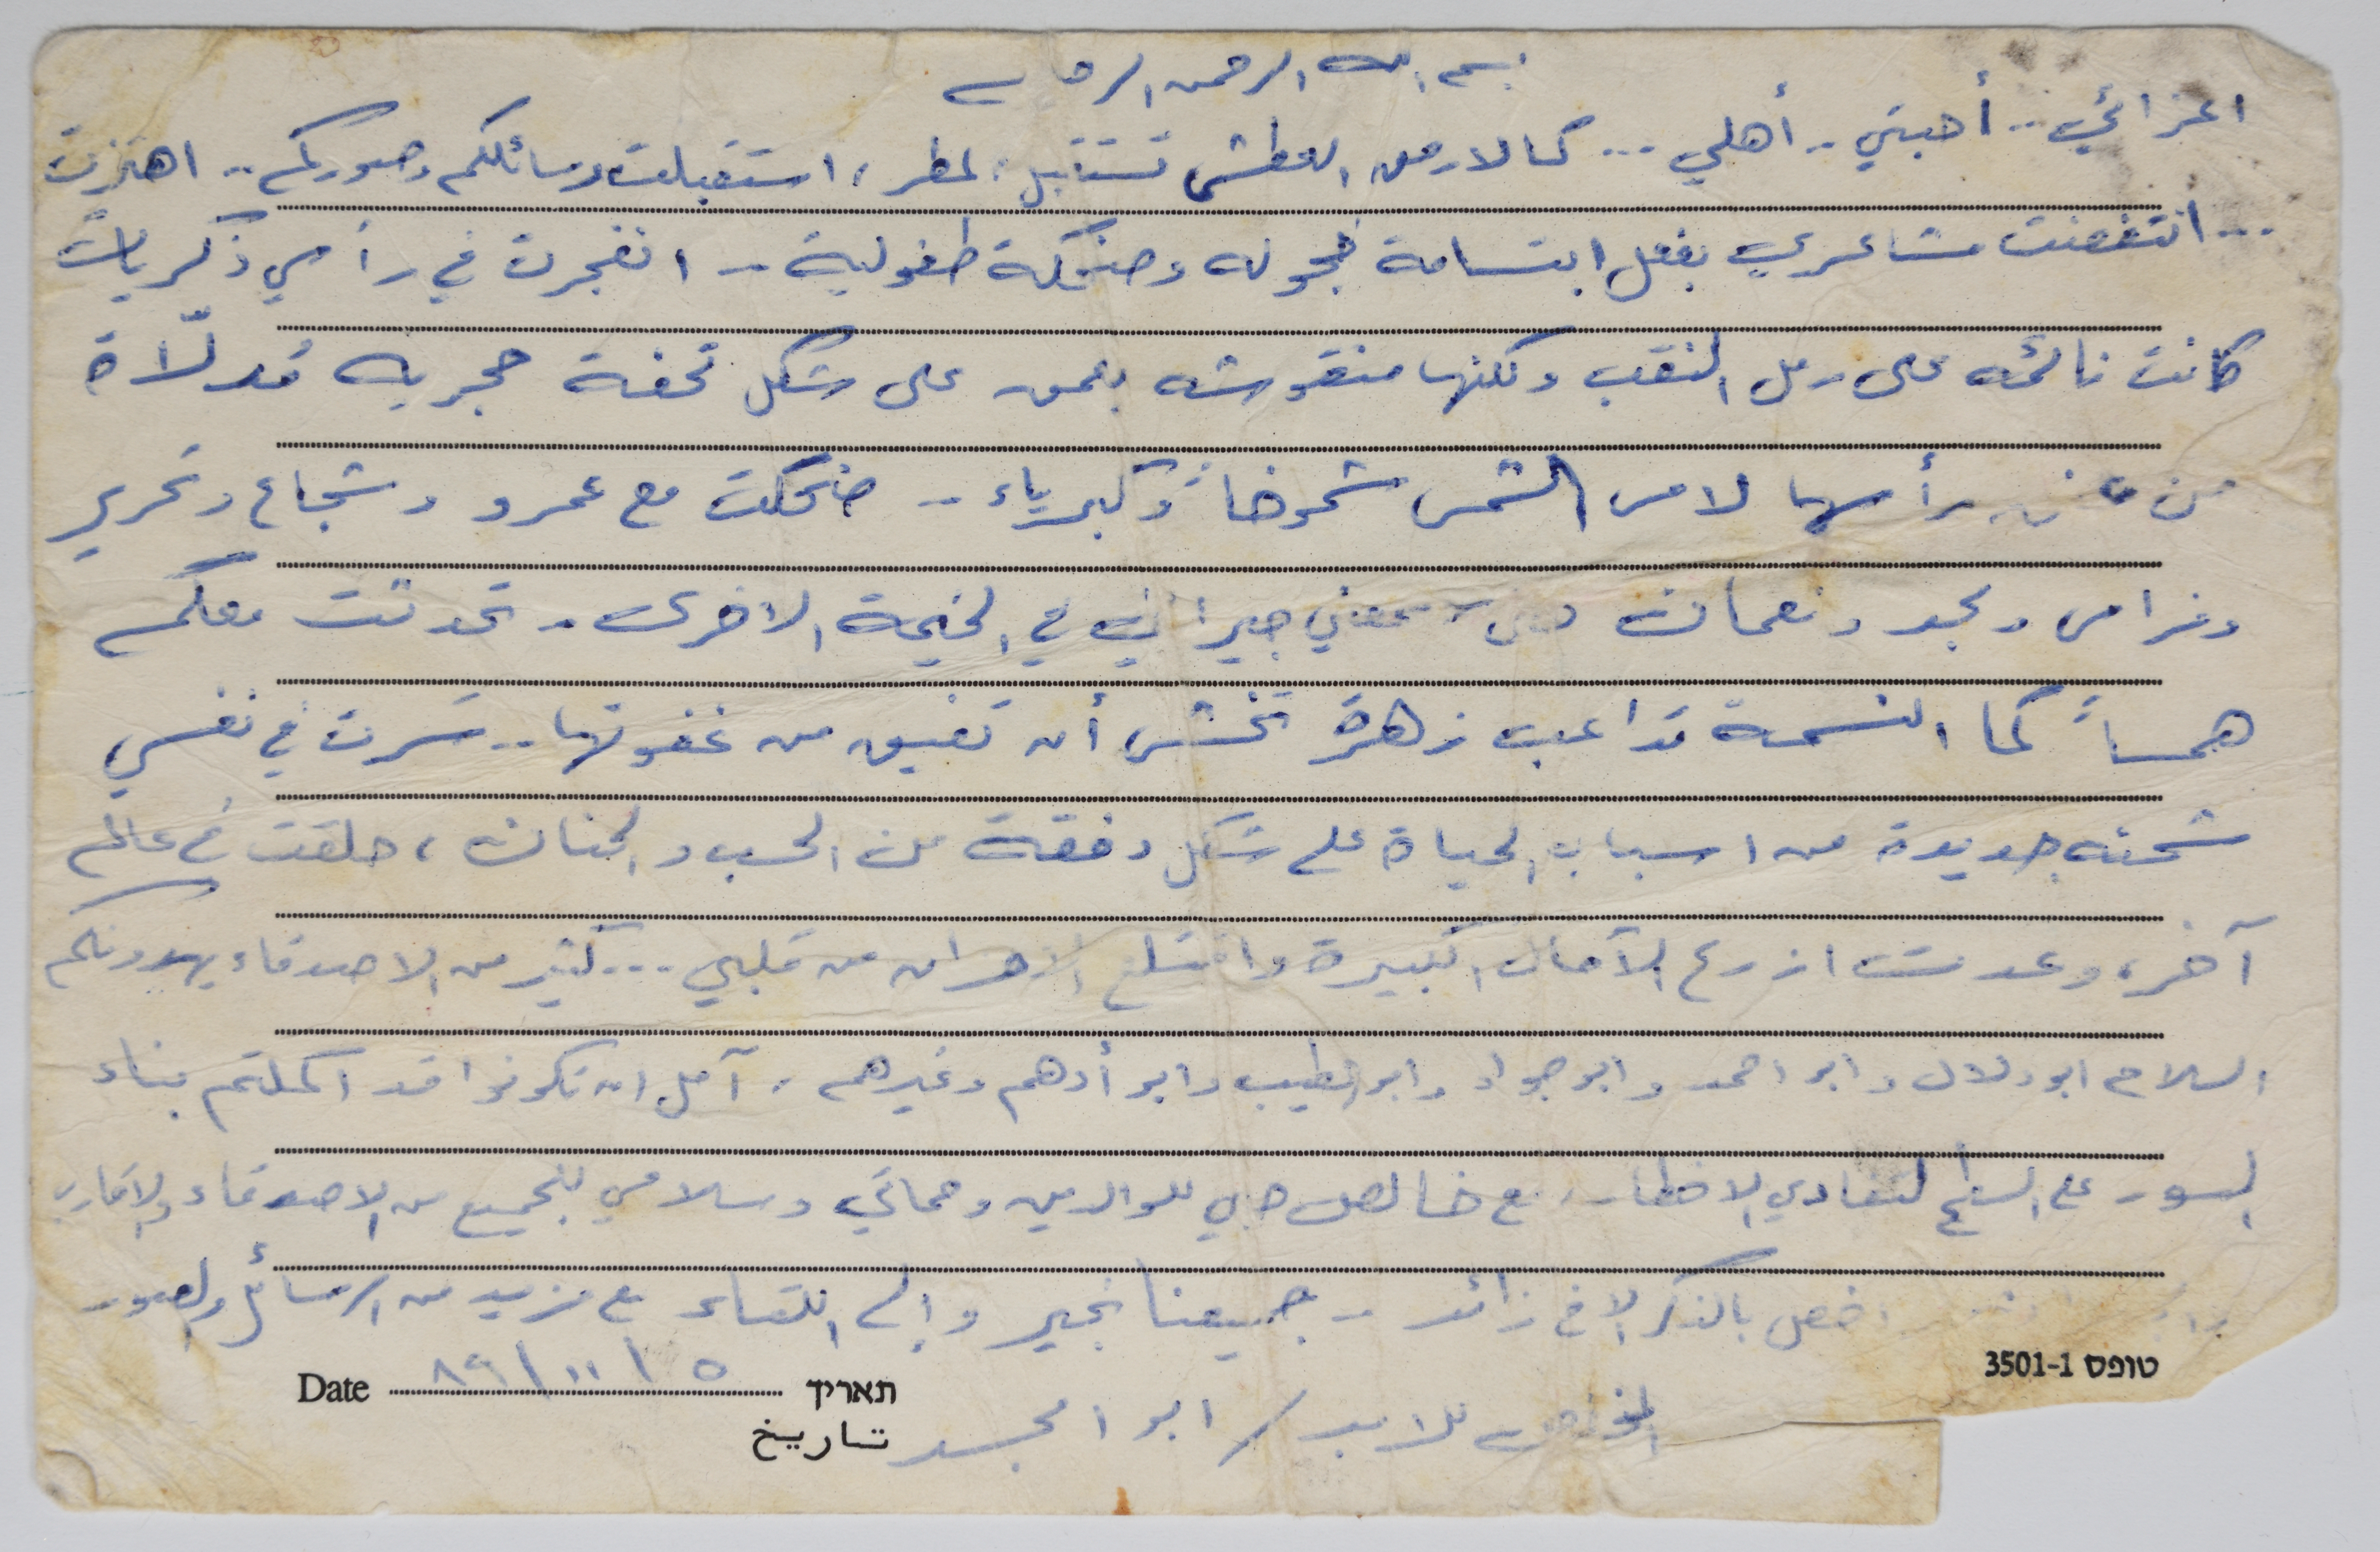 بسم الله الرحمن الرحيم
اعزائي.. أحبتي.. أهلي... كالارض العطشى تستقبل المطر، استقبلت رسائلكم وصوركم.. اهتزت
... انتفضت مشاعري بفعل ابتسامة خجوله وضحكة طفولية.. انفجرت في رأسي ذكريات
كانت نائمه على رمل النقب ولكنها منقوشه بعمق على شكل تحفة حجريه مُدلّاة
من رأسها لامس الشمس شموخاً وكبرياء.. ضحكت مع عمرو وشجاع وتحرير
وفراس ومجد ونعمان جيراني في الخيمة الاخرى.. تحدثت معكم
همساً كما النسمة تداعب زهرة تخشى أن تفيق من غفوتها.. سَرت في نفسي
شحنه جديدة من اسباب الحياة على شكل دفقة من الحب والحنان، حلقت في عالم
آخر، وعدت ازرع الآمال الكبيرة واقتلع الاحزان من قلبي... كثير من الاصدقاء يهدونكم
السلام ابو دلال وابو احمد وابو جواد وابو الطيب وابو أدهم وغيرهم. آمل ان تكونوا قد اكملتم بناء
السور على السطح لتفادي الاخطار، مع خالص حبي للوالدين وحماتي وسلامي للجميع من الاصدقاء والاقارب
اخص بالذكر الاخ زائد.. جميعنا بخير وإلى اللقاء مع مزيد من الرسائل والصور
טופס 3501-1
Date ٥ / ١١ / ٨٩ תאריך
تاريخ
المخلص للابد / ابو امجد